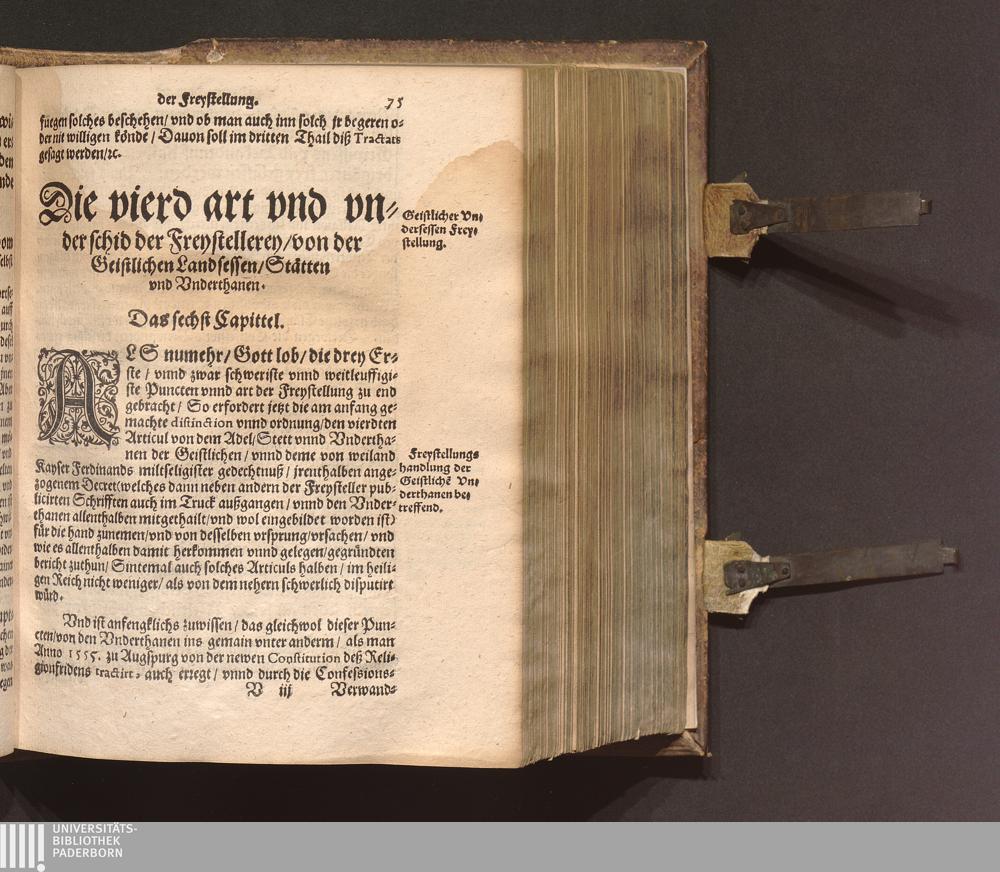 der Freystellung. 75
fuegen solches beschehen/ vnd ob man auch inn solch jr begeren o-
der nit willigen könde / Dauon soll im dritten Thail diß Tractats
gesagt werden/ꝛc.
Die vierd art vnd vn-
der schid der Freystellerey/von der
Geistlichen Landsessen/Stätten
vnd Vnderthanen.
Geistlicher Vn-
dersessen Frey-
stellung.
Das sechst Capittel.
ALS numehr/ Gott lob/ die drey Er-
ste / vnnd zwar schweriste vnnd weitleuffigi-
ste Puncten vnnd art der Freystellung zu end
gebracht/ So erfordert jetzt die am anfang ge-
machte distinction vnnd ordnung/den vierdten
Articul von dem Adel/Stett vnnd Vndertha-
nen der Geistlichen/ vnnd deme von weiland
Kayser Ferdinands miltseligister gedechtnuß/ jrenthalben ange-
zogenem Decret(welches dann neben andern der Freysteller pub-
licirten Schrifften auch im Truck außgangen/ vnnd den Vnder-
thanen allenthalben mitgethailt/vnd wol eingebildet worden ist)
für die hand zunemen/vnd von desselben vrsprung/vrsachen/ vnd
wie es allenthalben damit herkommen vnnd gelegen/gegründten
bericht zuthun/ Sintemal auch solches Articuls halben/ im heili-
gen Reich nicht weniger/ als von dem nehern schwerlich disputirt
würd.
Freystellungs
handlung der
Geistlichē Vn-
derthanen be-
treffend.
Vnd ist anfengklichs zuwissen/ das gleichwol dieser Pun-
cten/von den Vnderthanen ins gemain vnter anderm/ als man
Anno 1555. zu Augspurg von der newen Constitution deß Reli-
gionfridens tractirt, auch erregt/ vnnd durch die Confessions-
V iij Verwand-
UNIVERSITÄTS-
BIBLIOTHEK
PADERBORN